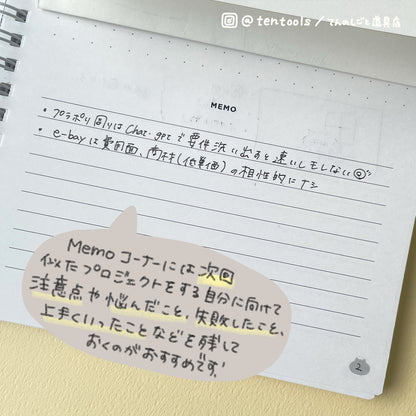 @tentools/てんのしごと道具店
MEMO
・プラポリ周りはChat-gptで要件洗い出すと速いしモレない◎
・e-bayは費用面、商材(低単価)の相性的にナシ
Memoコーナーには次回
似たプロジェクトをする自分に向けて
注意点や悩んだこと、失敗したこと、
上手くいったことなどを残して
おくのがおすすめです
2